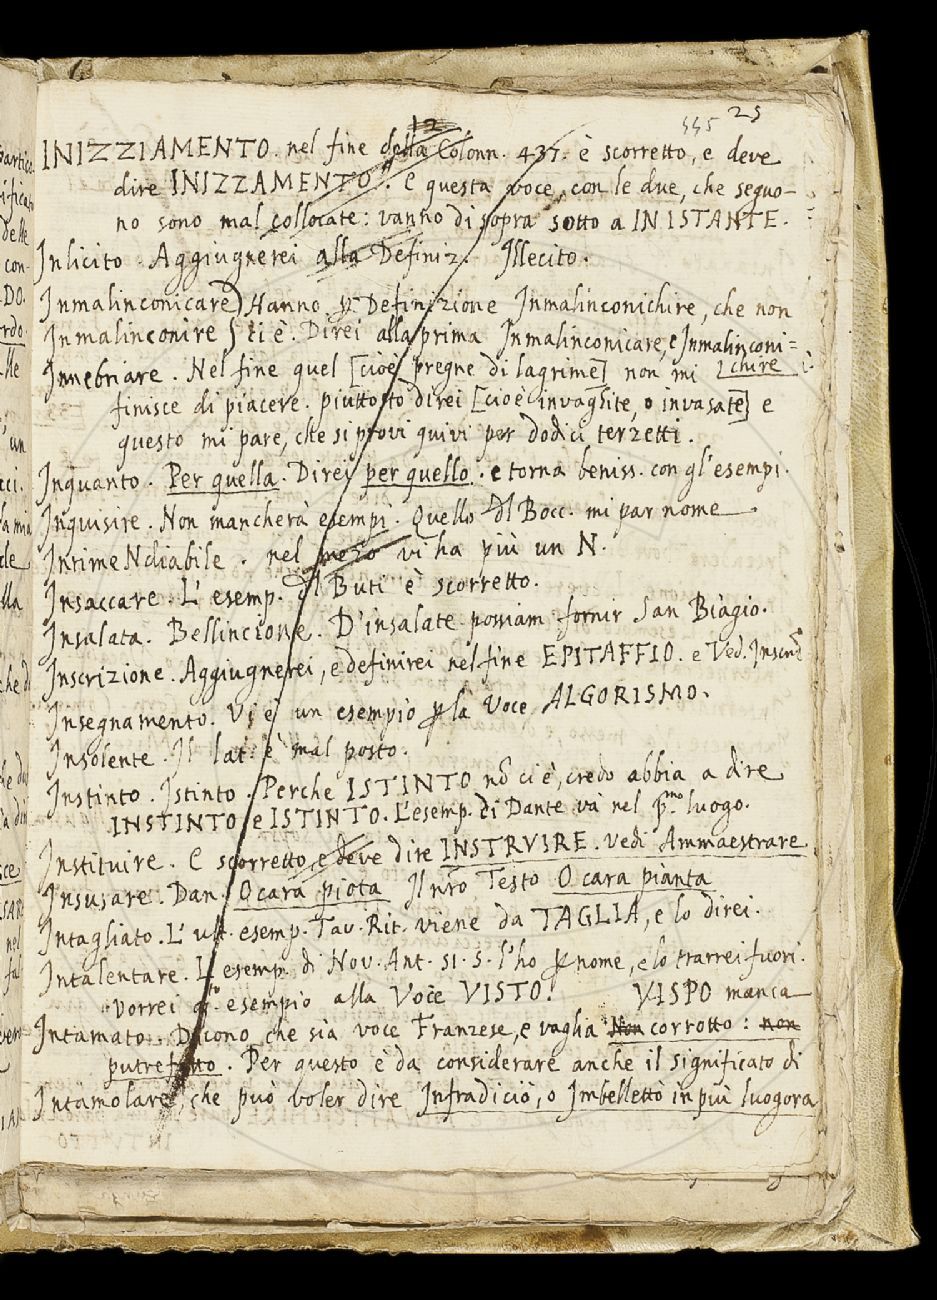 545 25
12
INIZZIAMENTO. nel fine della Colonn. 437. è scorretto, e deve
dire INIZZAMENTO. E questa voce, con le due, che seguo-
no sono mal collocate: vanno di sopra sotto a INISTANTE.
Inlicito. Aggiugnerei alla Definiz. Illecito.
Inmalinconicare) Hanno p Definizione Inmalinconichire, che non
Inmalinconire ti è. Direi alla prima Inmalinconicare, e Inmalinconi=
chire
Innebriare. Nel fine quel [cioè pregne di lagrime] non mi
finisce di piacere. piuttosto direi [cioè invaghite, o invasate] e
questo mi pare, che si provi quivi per dodici terzetti.
Inquanto. Per quella. Direi per quello. e torna beniss. con gl'esempi.
Inquisire. Non mancherà esempi. Quello dl Bocc. mi par nome
IntimeNdiabile. nel mezo vi ha più un N.
Insaccare. L'esemp. dl Buti è scorretto.
Insalata. Bellincione. D'insalate possiam fornir San Biagio.
Inscrizione. Aggiugnerei, e definirei nel fine EPITAFFIO. e Ved.
Insegnamento. Vi è un esempio p la Voce ALGORISMO.
Insolente. Il lat. è mal posto.
Instinto. Istinto. Perche ISTINTO nõ ci è, credo abbia a dire
INSTINTO, e ISTINTO. L'esemp. di Dante và nel pmo luogo.
Instituire. E scorretto e deve dire INSTRVIRE. vedi Ammaestrare
Insusare. Dan. O cara piota Il nrõ Testo O cara pianta
Intagliato. L'ult. esemp. Tav. Rit. viene da TAGLIA, e lo direi.
Intalentare. L'esemp. di Nov. Ant. 51. 5. l'ho p nome, e lo trarrei fuori.
Vorrei qto esempio alla Voce VISTO. VISPO manca
Intamato. Dicono, che sià voce Franzese, e vaglia Non corrotto: non
putrefatto. Per questo è da considerare anche il significato di
Intamolare, che può voler dire Infradiciò, o Imbellettò in più luogora